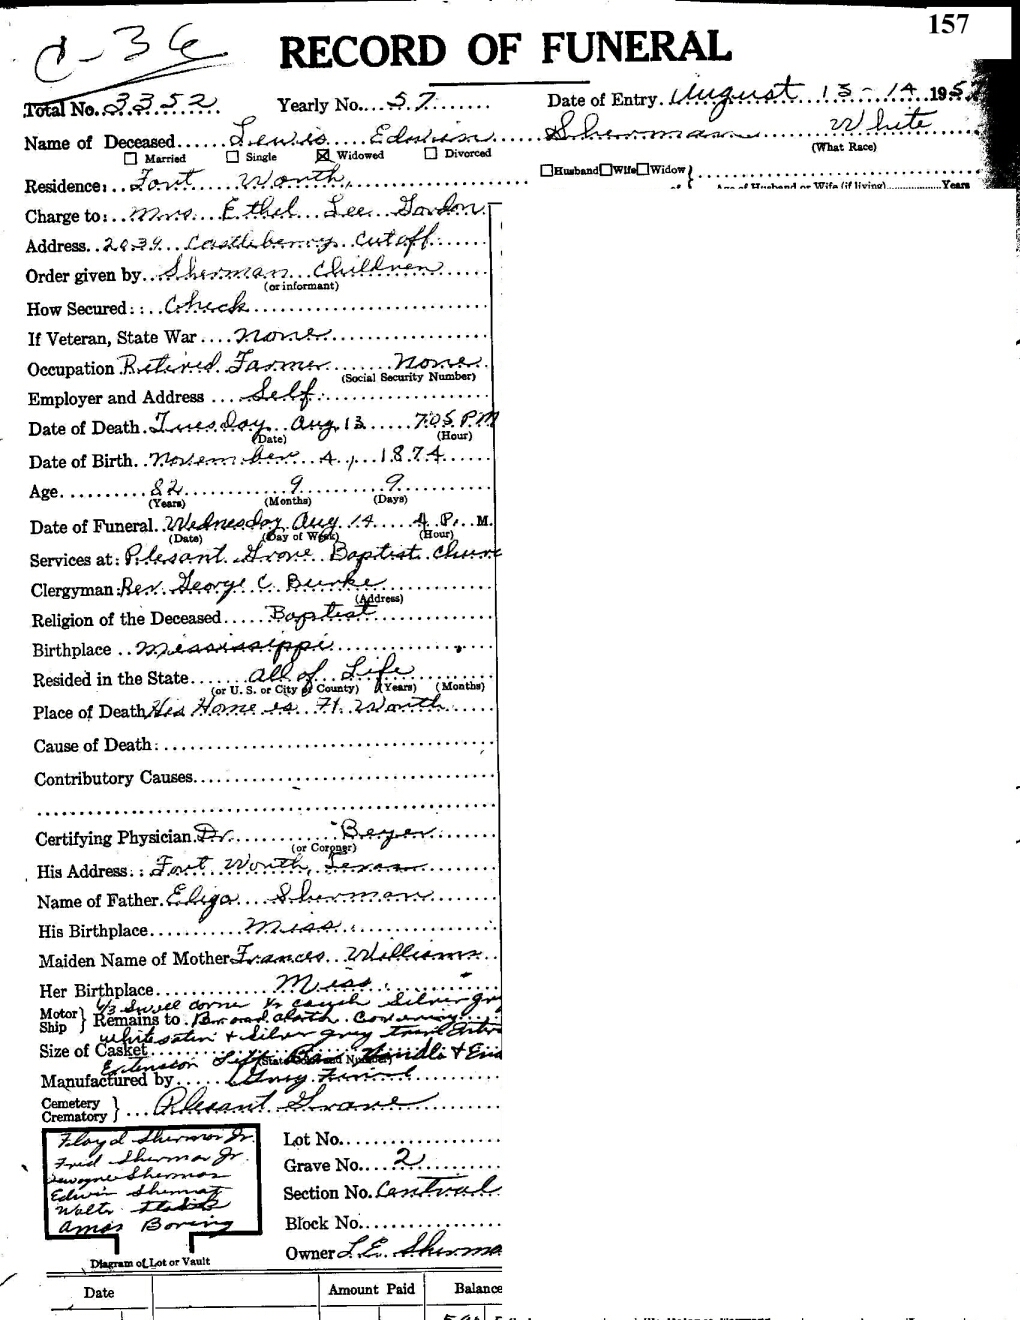 157
C-36
RECORD OF FUNERAL
Total No. 3352 Yearly No. 57 Date of Entry. August 13-14 1957
Name of Deceased Lewis Edwin Sherman White
☐ Married ☐ Single ☒ Widowed ☐ Divorced (What Race)
Residence: Fort Worth, ☐Husband☐Wife☐Widow} of Age of Husband or Wife (if living) Years
Charge to: Mrs. Ethel Lee Gordon
Address 2039 Castleberry Cutoff
Order given by Sherman Children
(or informant)
How Secured: Check
If Veteran, State War None
Occupation Retired Farmer None
(Social Security Number)
Employer and Address Self
Date of Death. Tuesday Aug 13 7:05 P.M
(Date) (Hour)
Date of Birth November 4, 1874
Age 82 9 9
(Years) (Months) (Days)
Date of Funeral. Wednesday Aug. 14 4 P. M.
(Date) (Day of Week) (Hour)
Services at: Plesant Grove Baptist Churc
Clergyman: Rev. George C. Burke
(Address)
Religion of the Deceased Baptist
Birthplace Mississippi
Resided in the State All of Life
(or U. S. or City or County) (Years) (Months)
Place of Death His Home is Ft. Worth
Cause of Death:
Contributory Causes
Certifying Physician. Dr. Beyer
(or Coroner)
His Address: Fort Worth, Texas
Name of Father. Eliga Sherman
His Birthplace Miss.
Maiden Name of Mother Frances Williams
Her Birthplace Miss.
6/3 Swell corner couch Silver gry
Motor Ship } Remains to Broad cloth Covering
white satin + Silver grey
Size of Casket Handle + End
Extension (State Color and Number)
Manufactured by
Cemetery Crematory } Plesant Grove
Floyd Sherman Jr.
Fred Sherman Jr.
Dewayne Sherman
Edwin Sherman
Walter
Amos Boring
Diagram of Lot or Vault
Lot No.
Grave No. 2
Section No. Central
Block No.
Owner L.E. Sherma
Date Amount Paid Balance